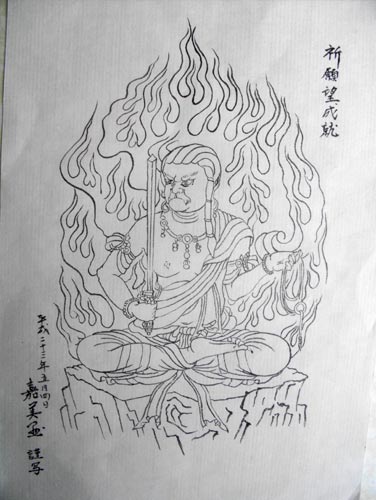 祈願望成就
平成二十三年五月四日
嘉美 謹写